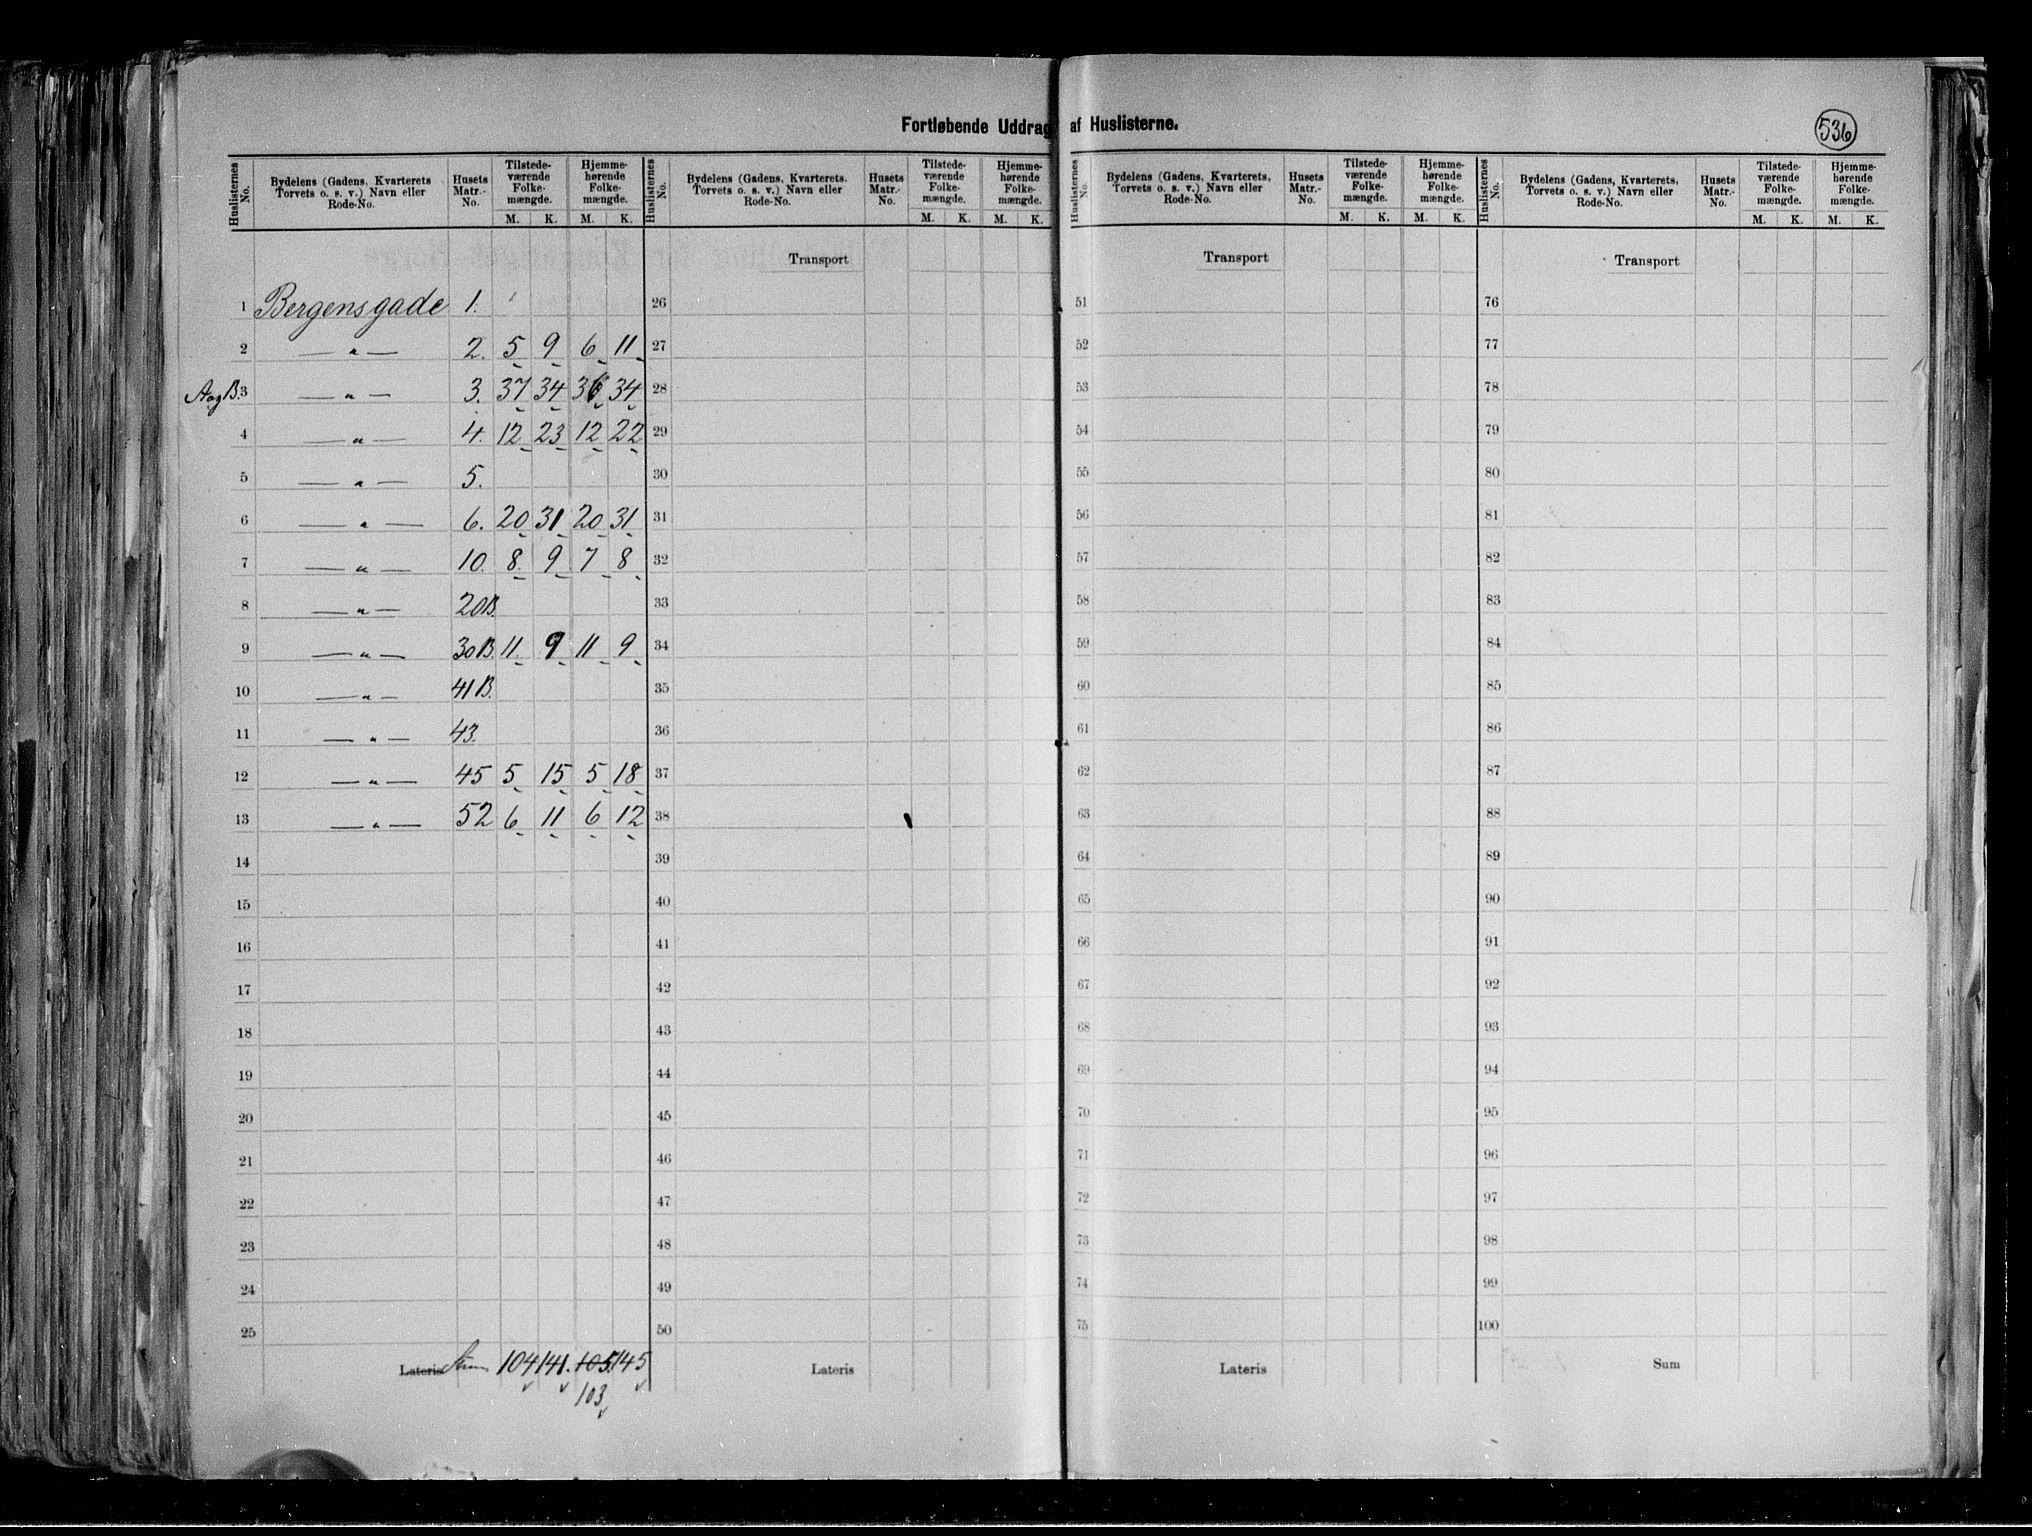 Fortløbende Uddrag af Huslisterne.
536
Huslisternes No. | Bydelens (Gadens, Kvarterets Torvets o. s. v.) Navn eller Rode-No. | Husets Matr.-No. | Tilstede-værende Folke-mængde. M. K. | Hjemme-hørende Folke-mængde. M. K.
Huslisternes No. | Bydelens (Gadens, Kvarterets. Torvets o. s. v.) Navn eller Rode-No. | Husets Matr.-No. | Tilstede-værende Folke-mængde. M. K. | Hjemme-hørende Folke-mængde. M. K.
Huslisternes No. | Bydelens (Gadens, Kvarterets, Torvets o. s. v.) Navn eller Rode-No. | Husets Matr.-No. | Tilstede-værende Folke-mængde. M. K. | Hjemme-hørende Folke-mængde. M. K.
Huslisternes No. | Bydelens (Gadens, Kvarterets, Torvets o. s. v.) Navn eller Rode-No. | Husets Matr.-No. | Tilstede-værende Folke-mængde. M. K. | Hjemme-hørende Folke-mængde. M. K.
Transport Transport Transport
1 Bergensgade 1. 26 51 76
2 — " — 2. 5 9 6 11 27 52 77
A og B. 3 — " — 3. 37 34 36 34 28 53 78
4 — " — 4. 12 23 12 22 29 54 79
5 — " — 5. 30 55 80
6 — " — 6. 20 31 20 31 31 56 81
7 — " — 10. 8 9 7 8 32 57 82
8 — " — 20B. 33 58 83
9 — " — 30B. 11 9 11 9 34 59 84
10 — " — 41B. 35 60 85
11 — " — 43. 36 61 86
12 — " — 45 5 15 5 18 37 62 87
13 — " — 52 6 11 6 12 38 63 88
14 39 64 89
15 40 65 90
16 41 66 91
17 42 67 92
18 43 68 93
19 44 69 94
20 45 70 95
21 46 71 96
22 47 72 97
23 48 73 98
24 49 74 99
25 50 75 100
Lateris Sum 104 141. 105. 145 Lateris Lateris Sum
103